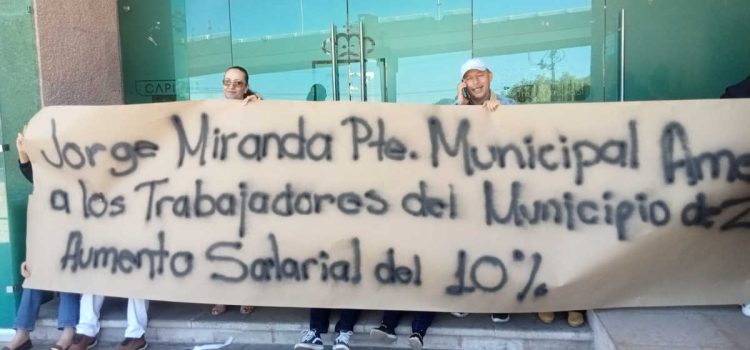 CAPI
Jorge Miranda Pte. Municipal Ame
a los Trabajadores del Municipio de Z
Aumento Salarial del 10%